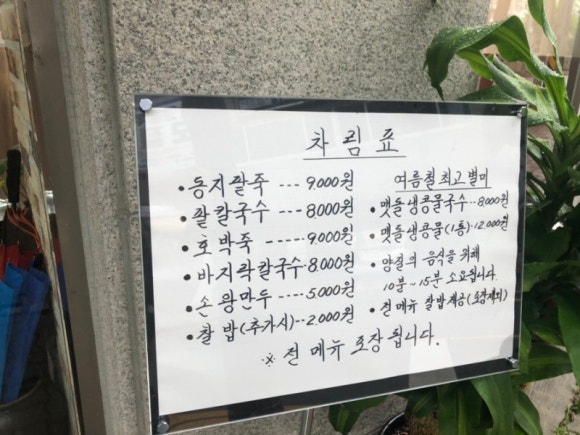 차림표
• 동지팥죽 --- 9,000원
• 팥칼국수 --- 8,000원
• 호박죽 ---- 9,000원
• 바지락칼국수- 8,000원
• 손왕만두 --- 5,000원
• 찰밥(추가시) -- 2,000원
여름철 최고 별미
• 맷돌생콩물국수-- 8,000원
• 맷돌생콩물(1통)- 12,000원
• 양질의 음식을 위해
10분~15분 소요됩니다.
• 전메뉴 찰밥제공(포장제외)
※ 전 메뉴 포장 됩니다.